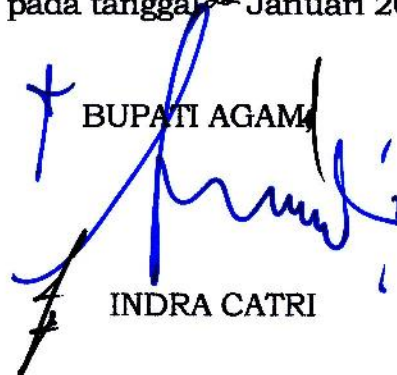 pada tanggal Januari 20
BUPATI AGAM
INDRA CATRI